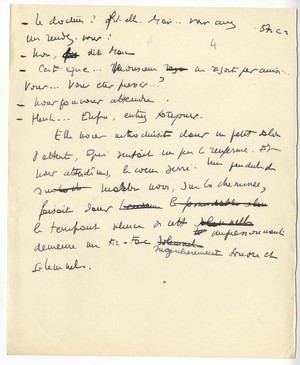 - Le docteur ? fit-elle. Mais... vous avez
un rendez-vous ?
4
- Non, dit Marc
- C'est que... Monsieur ne reçoit pas ainsi...
Vous... Vous êtes pressé... ?
- Nous pouvons attendre.
- Heuh... Enfin, entrez toujours.
Elle nous introduisit dans un petit salon
d'attente, qui sentait un peu le renfermé. Et
nous attendîmes, le cœur serré. Une pendule de
marbre noir, sur la cheminée,
faisait dans
le tempo silence de cette impressionnante
demeure un tic-tac singulièrement sonore et
solennel.